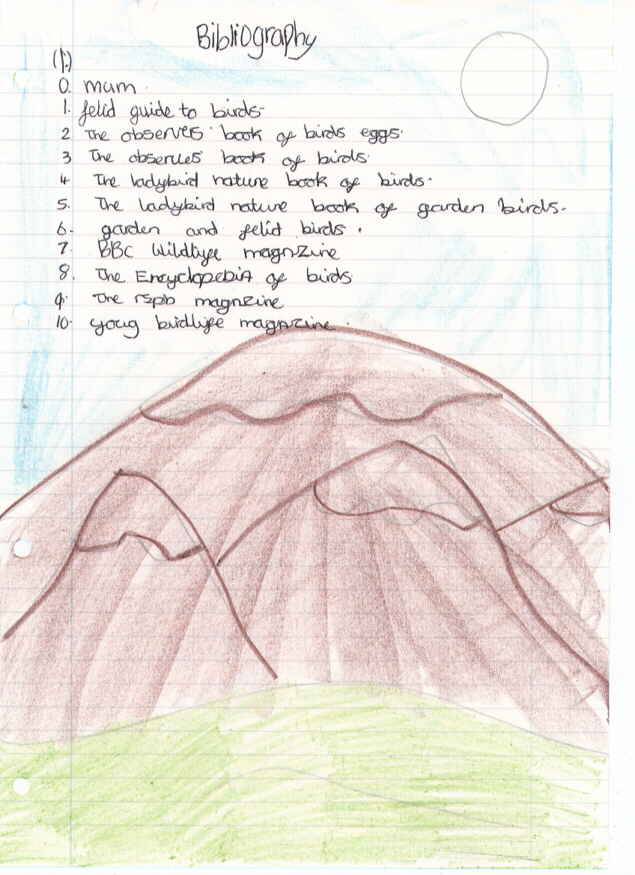 Bibliography
(1:)
0. mum.
1. felid guide to birds.
2 The observes' book of birds eggs.
3 The observes' book of birds.
4 The ladybird nature book of birds.
5. The ladybird nature book of garden birds.
6. garden and felid birds.
7. BBC Wildlife magnzine
8. The Encyclopedia of birds
9. The rspb magnzine
10. youg birdlife magnzine.